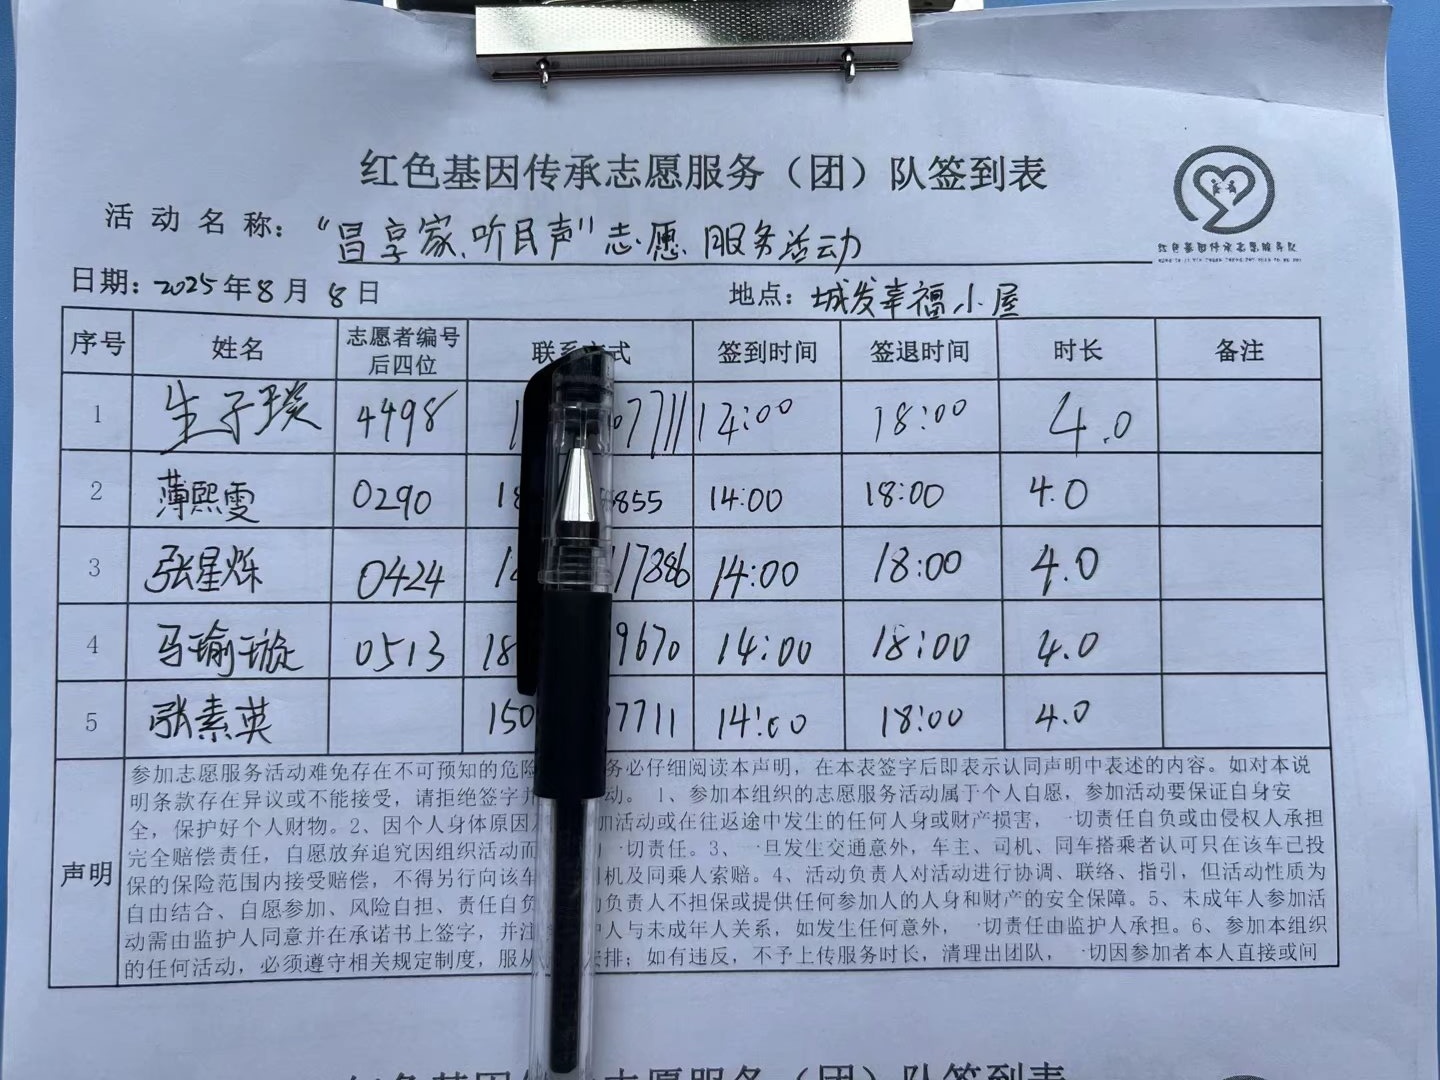 红色基因传承志愿服务（团）队签到表
活动名称：“昌享家、听民声”志愿服务活动
红色基因传承志愿服务队
日期：2025年8月8日 地点：城发幸福小屋
序号 姓名 志愿者编号后四位 联系方式 签到时间 签退时间 时长 备注
1 生子琰 4498 1 07711 14:00 18:00 4.0
2 薄熙雯 0290 18 855 14:00 18:00 4.0
3 张星烁 0424 1 17386 14:00 18:00 4.0
4 马瑜璇 0513 18 9670 14:00 18:00 4.0
5 张素英 150 7711 14:00 18:00 4.0
声明
参加志愿服务活动难免存在不可预知的危险 务必仔细阅读本声明，在本表签字后即表示认同声明中表述的内容。如对本说
明条款存在异议或不能接受，请拒绝签字并 动。1、参加本组织的志愿服务活动属于个人自愿，参加活动要保证自身安
全，保护好个人财物。2、因个人身体原因 加活动或在往返途中发生的任何人身或财产损害，一切责任自负或由侵权人承担
完全赔偿责任，自愿放弃追究因组织活动而 一切责任。3、一旦发生交通意外，车主、司机、同车搭乘者认可只在该车已投
保的保险范围内接受赔偿，不得另行向该车 机及同乘人索赔。4、活动负责人对活动进行协调、联络、指引，但活动性质为
自由结合、自愿参加、风险自担、责任自负 负责人不担保或提供任何参加人的人身和财产的安全保障。5、未成年人参加活
动需由监护人同意并在承诺书上签字，并注 护人与未成年人关系，如发生任何意外，一切责任由监护人承担。6、参加本组织
的任何活动，必须遵守相关规定制度，服从 安排；如有违反，不予上传服务时长，清理出团队，一切因参加者本人直接或间
红色基因传 志愿服务（团）队签到表